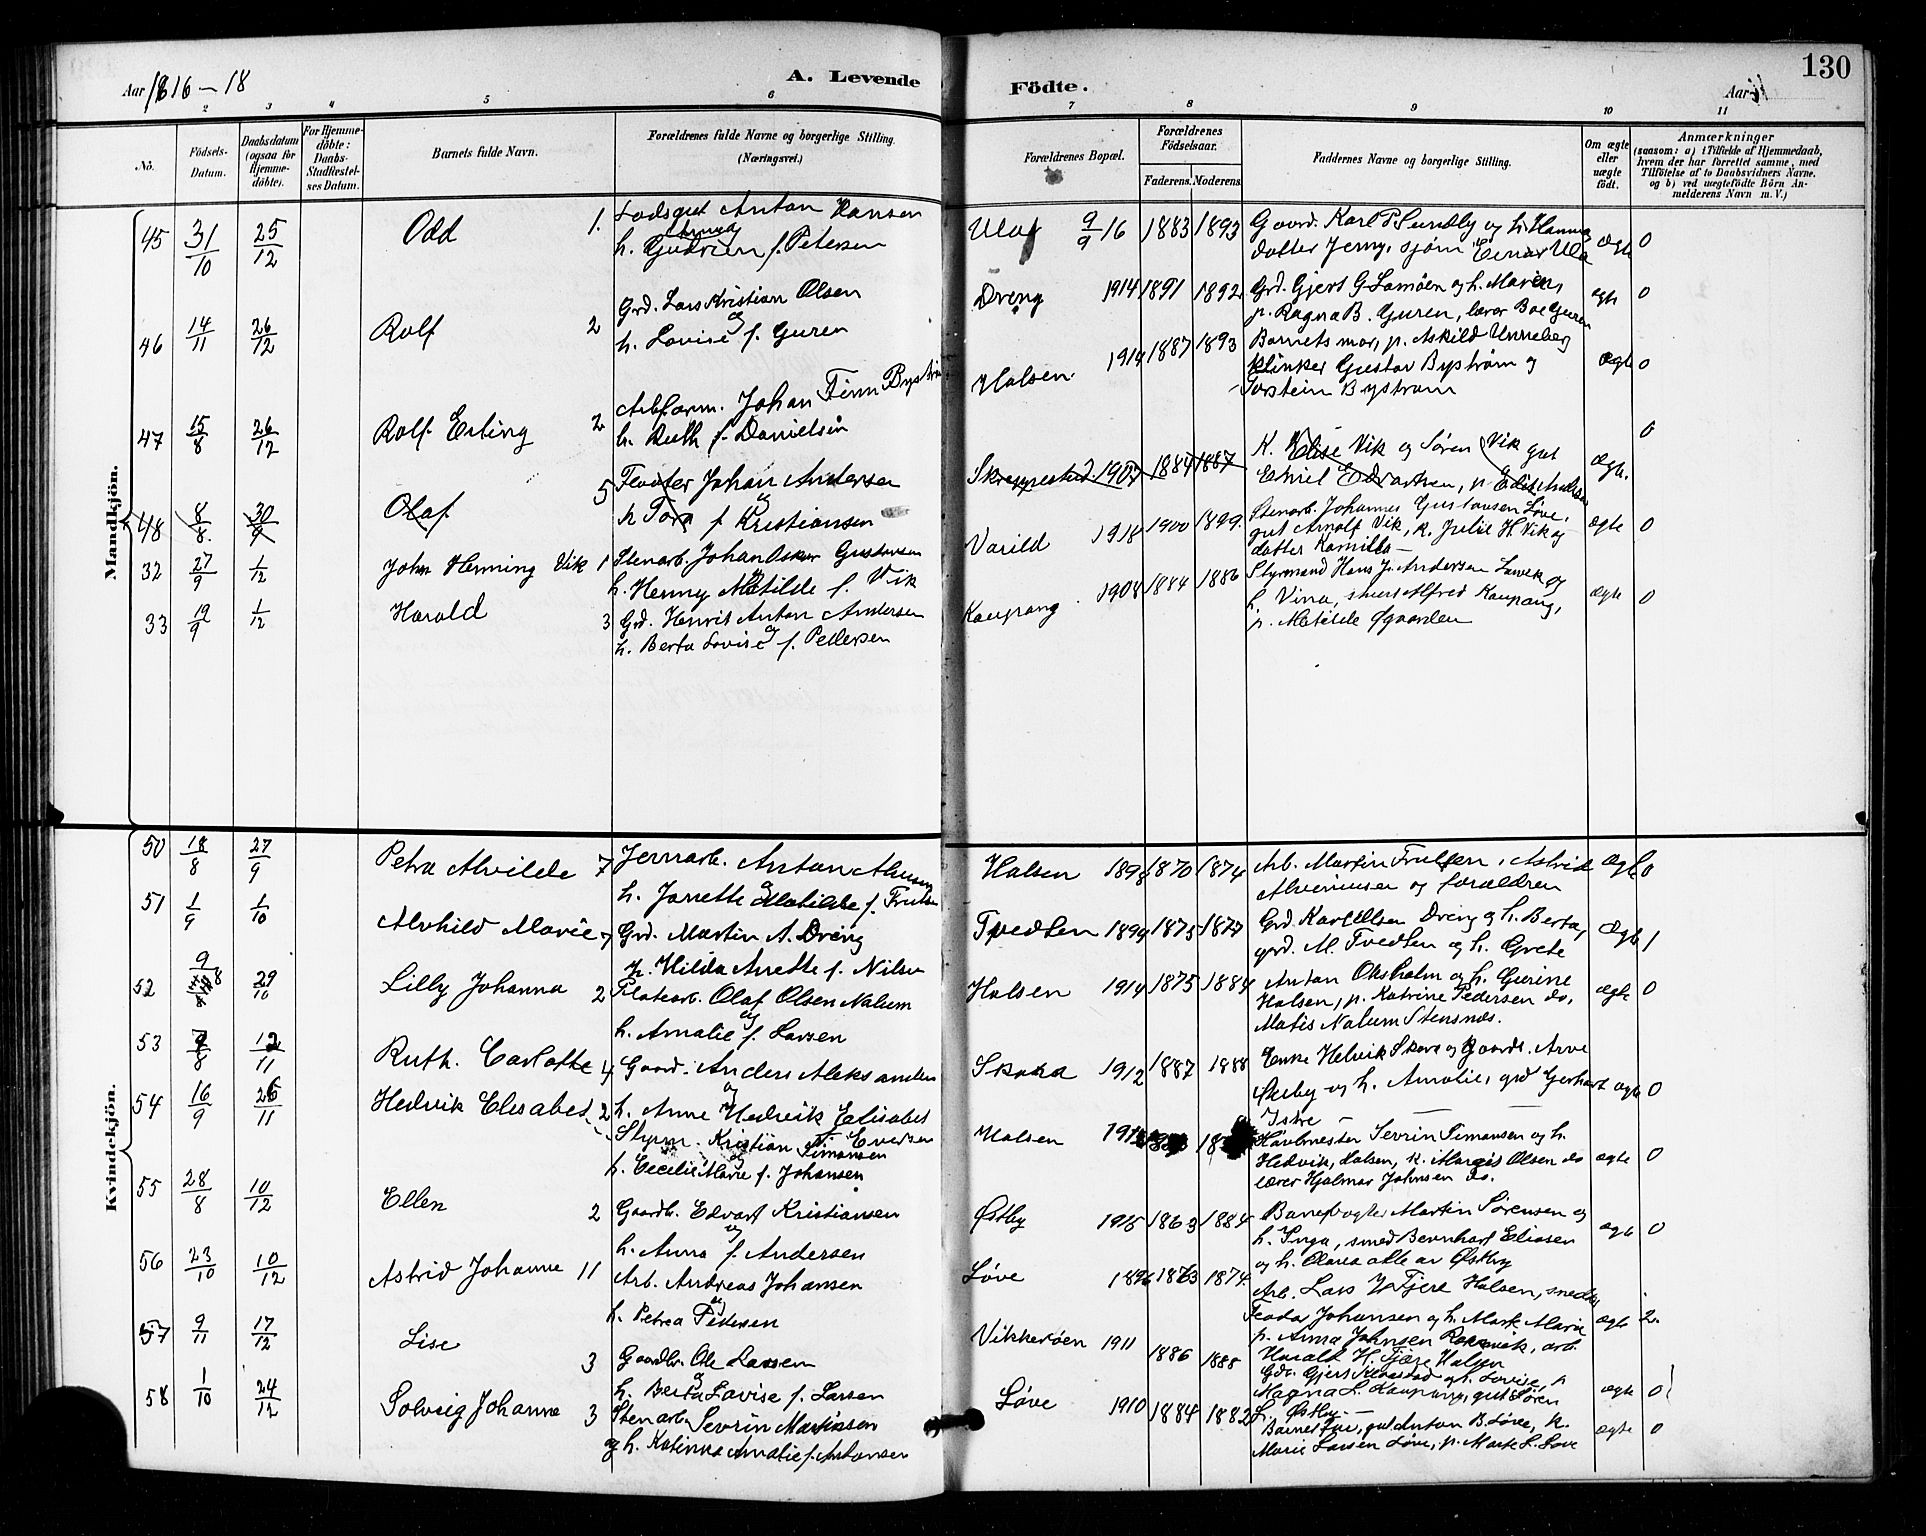 Aar 1916-18
A. Levende
Födte.
Aar
130
2 3 4 5 6 7 8 9 10 11
No.
Födsels-Datum.
Daabsdatum (ogsaa for Hjemme-döbte).
For Hjemme-döbte: Daabs-Stadfæstel-ses Datum.
Barnets fulde Navn.
Forældrenes fulde Navne og borgerlige Stilling.
(Næringsvei.)
Forældrenes Bopæl.
Forældrenes Födselsaar.
Faderens. Moderens.
Faddernes Navne og borgerlige Stilling.
Om ægte eller uægte födt.
Anmærkninger
(saasom: a) i Tilfælde af Hjemmedaab, hvem der har forrettet samme, med Tilföielse af to Daabsvidners Navne. og b) ved uægtefödte Börn An-melderens Navn m. V.)
Mandkjön.
45 31/10 25/12 Odd 1. Lodsgut Anton Hansen
h. Gudrun f. Petersen
Ula 9/9 16 1883 1893 Gaard. Karl P. Sundby og h. Hanna,
datter Jenny, sjöm. Einar Ula ægte 0
46 14/11 26/12 Rolf 2 Grd. Lars Kristian Olsen
og
h. Lovise f. Guren
Dreng 1914 1891 1892 Grd. Gjert G. Lamöen og h. Maren,
p. Ragna B. Guren, lærer Boe Guren ægte 0
47 15/8 26/12 Rolf Erling 2 Arbform. Johan Finn Byström
h. Ruth f. Danielsen
Halsen 1914 1887 1893 Barnets mor, p. Askild Unneberg
klinker Gustav Byström og
Torstein Byström ægte 0
48 8/8 30/9 Olaf 5 Fløter Johan Andersen
og
h Tora f Kristiansen
Skreppestad 1907 1884 1887 K. Elise Vik og Søren Vik gut
Emil Edvartsen, p Edit Andersen ægte. 0
32 27/9 1/12 John Henning Vik 1 Stenarb. Johan Oskar Gustavsen
h. Henny Matilde f. Vik
Varild 1918 1900 1899 Stenarb. Johannes Gustavsen Løve,
gut Arnolf Vik, k. Julie H. Vik og
datter Kamilla - ægte 0
33 19/9 1/12 Harald 3 Grd. Henrik Anton Andersen
og
h. Berta Lovise f. Pettersen
Kaupang 1908 1884 1886 Styrmand Hans J. Andersen Larvik og
h. Vina, Alfred Kaupang,
p. Matilde Øgaarden ægte 0
Kvindekjön.
50 18/8 27/9 Petra Alvilde 7 Jernarb. Anton
h. Josette Matilde f.
Halsen 1898 1870 1874 Arb. Martin , Astrid
og forældren ægte 0
51 1/9 1/10 Alvhild Marie 7 Grd. Martin A. Dreng
h. Hilda Anette f. Nilsen
Tvedten 1899 1875 1877 Grd. Karl Olsen Dreng og h. Berta,
grd. M. Tvedten og h. Grete ægte 1
52 9/8 29/10 Lilly Johanna 2 Platearb. Olaf Olsen Nalum
og
h. Amalie f. Larsen
Halsen 1914 1875 1884 Anton Oksholm og h. Gurine
Halsen, p. Katrine Pedersen do,
Matis Nalum Stensnæs. ægte 0
53 7/8 12/11 Ruth Carlotte 4 Gaard. Anders Aleksandersen
og
h. Anne Hedvik Elisabet
Skara 1912 1887 1888 Enke Helvik Skara og Gaardb. Arve
Østby og h. Amalie, grd Gerhart
Istre - ægte 0
54 16/9 26/11 Hedvik Elisabet 2 Styrm. Kristian Simonsen
h. Cecelie Marie f. Johansen
Halsen Havnemester Sevrin Simonsen og h.
Hedvik, Halsen, k. Margit Olsen do
lærer Hjalmar Johnsen do. ægte 0
55 28/8 10/12 Ellen 2 Gaardb. Edvart Kristiansen
og
h. Anna f. Andersen
Østby 1915 1863 1884 Banevogter Martin Sørensen og
h. Inga, smed Bernhart Eliasen
og h. Olava alle av Østby ægte 0
56 23/10 10/12 Astrid Johanne 11 Arb. Andreas Johansen
og
h. Petrea Pedersen
Løve 1896 1873 1874 Arb. Lars H. Fjære Halsen, smed
Teodor Johansen og h. Mark Marie
p. Anna Johnsen , arb.
Harald H. Fjære Halsen ægte 2.
57 9/11 17/12 Lise 3 Gaardbr. Ole Larsen
og
h. Berta Lovise f. Larsen
Vikkerøen 1911 1886 1888 Gdr. Gjert Klaastad og h. Lovise, p
Magna L. Kaupang, gut Søren
L. Østby - ægte 0
58 1/10 24/12 Solveig Johanne 3 Stenarb. Sevrin Mathisen
og h. Katinka Amalie f. Antonsen
Løve 1910 1884 1882 Barnets far, gut Anton B. Løve, k.
Marie Larsen Løve, p. Marte L. Løve ægte 0